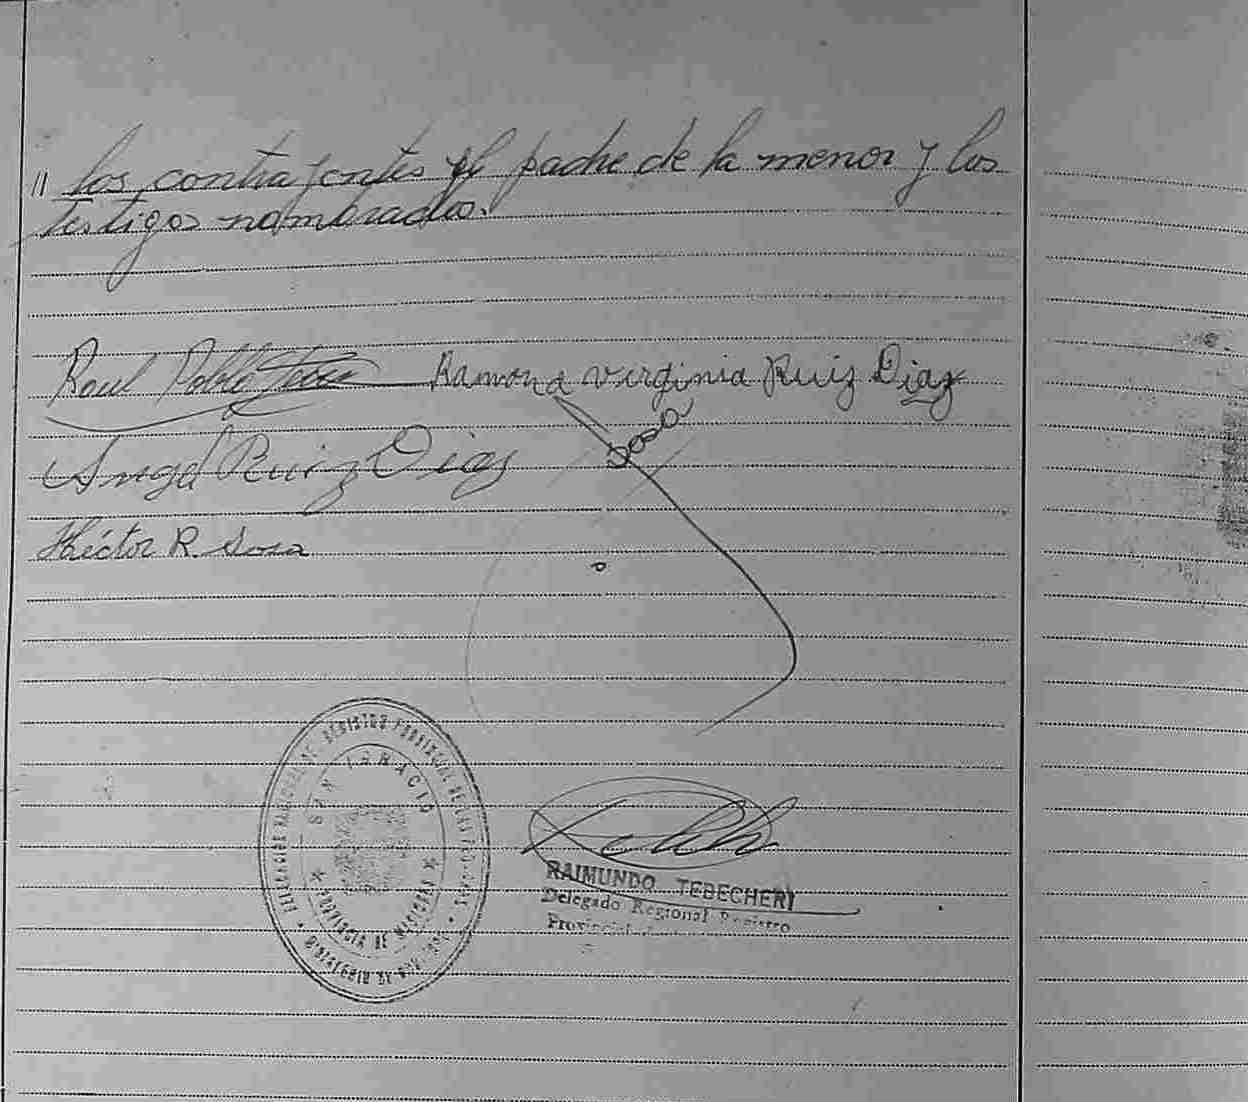 " los contrayentes y el padre de la menor y los
testigos nombrados.
Raul Pablo
Ramona Virginia Ruiz Diaz
Sosa
Angel Ruiz Diaz
Héctor R. Sosa
REGISTRO PROVINCIAL DE LAS PERSONAS
SAN IGNACIO
PROVINCIA DE MISIONES
RAIMUNDO TEBECHERI
Delegado Regional Registro
Provincial